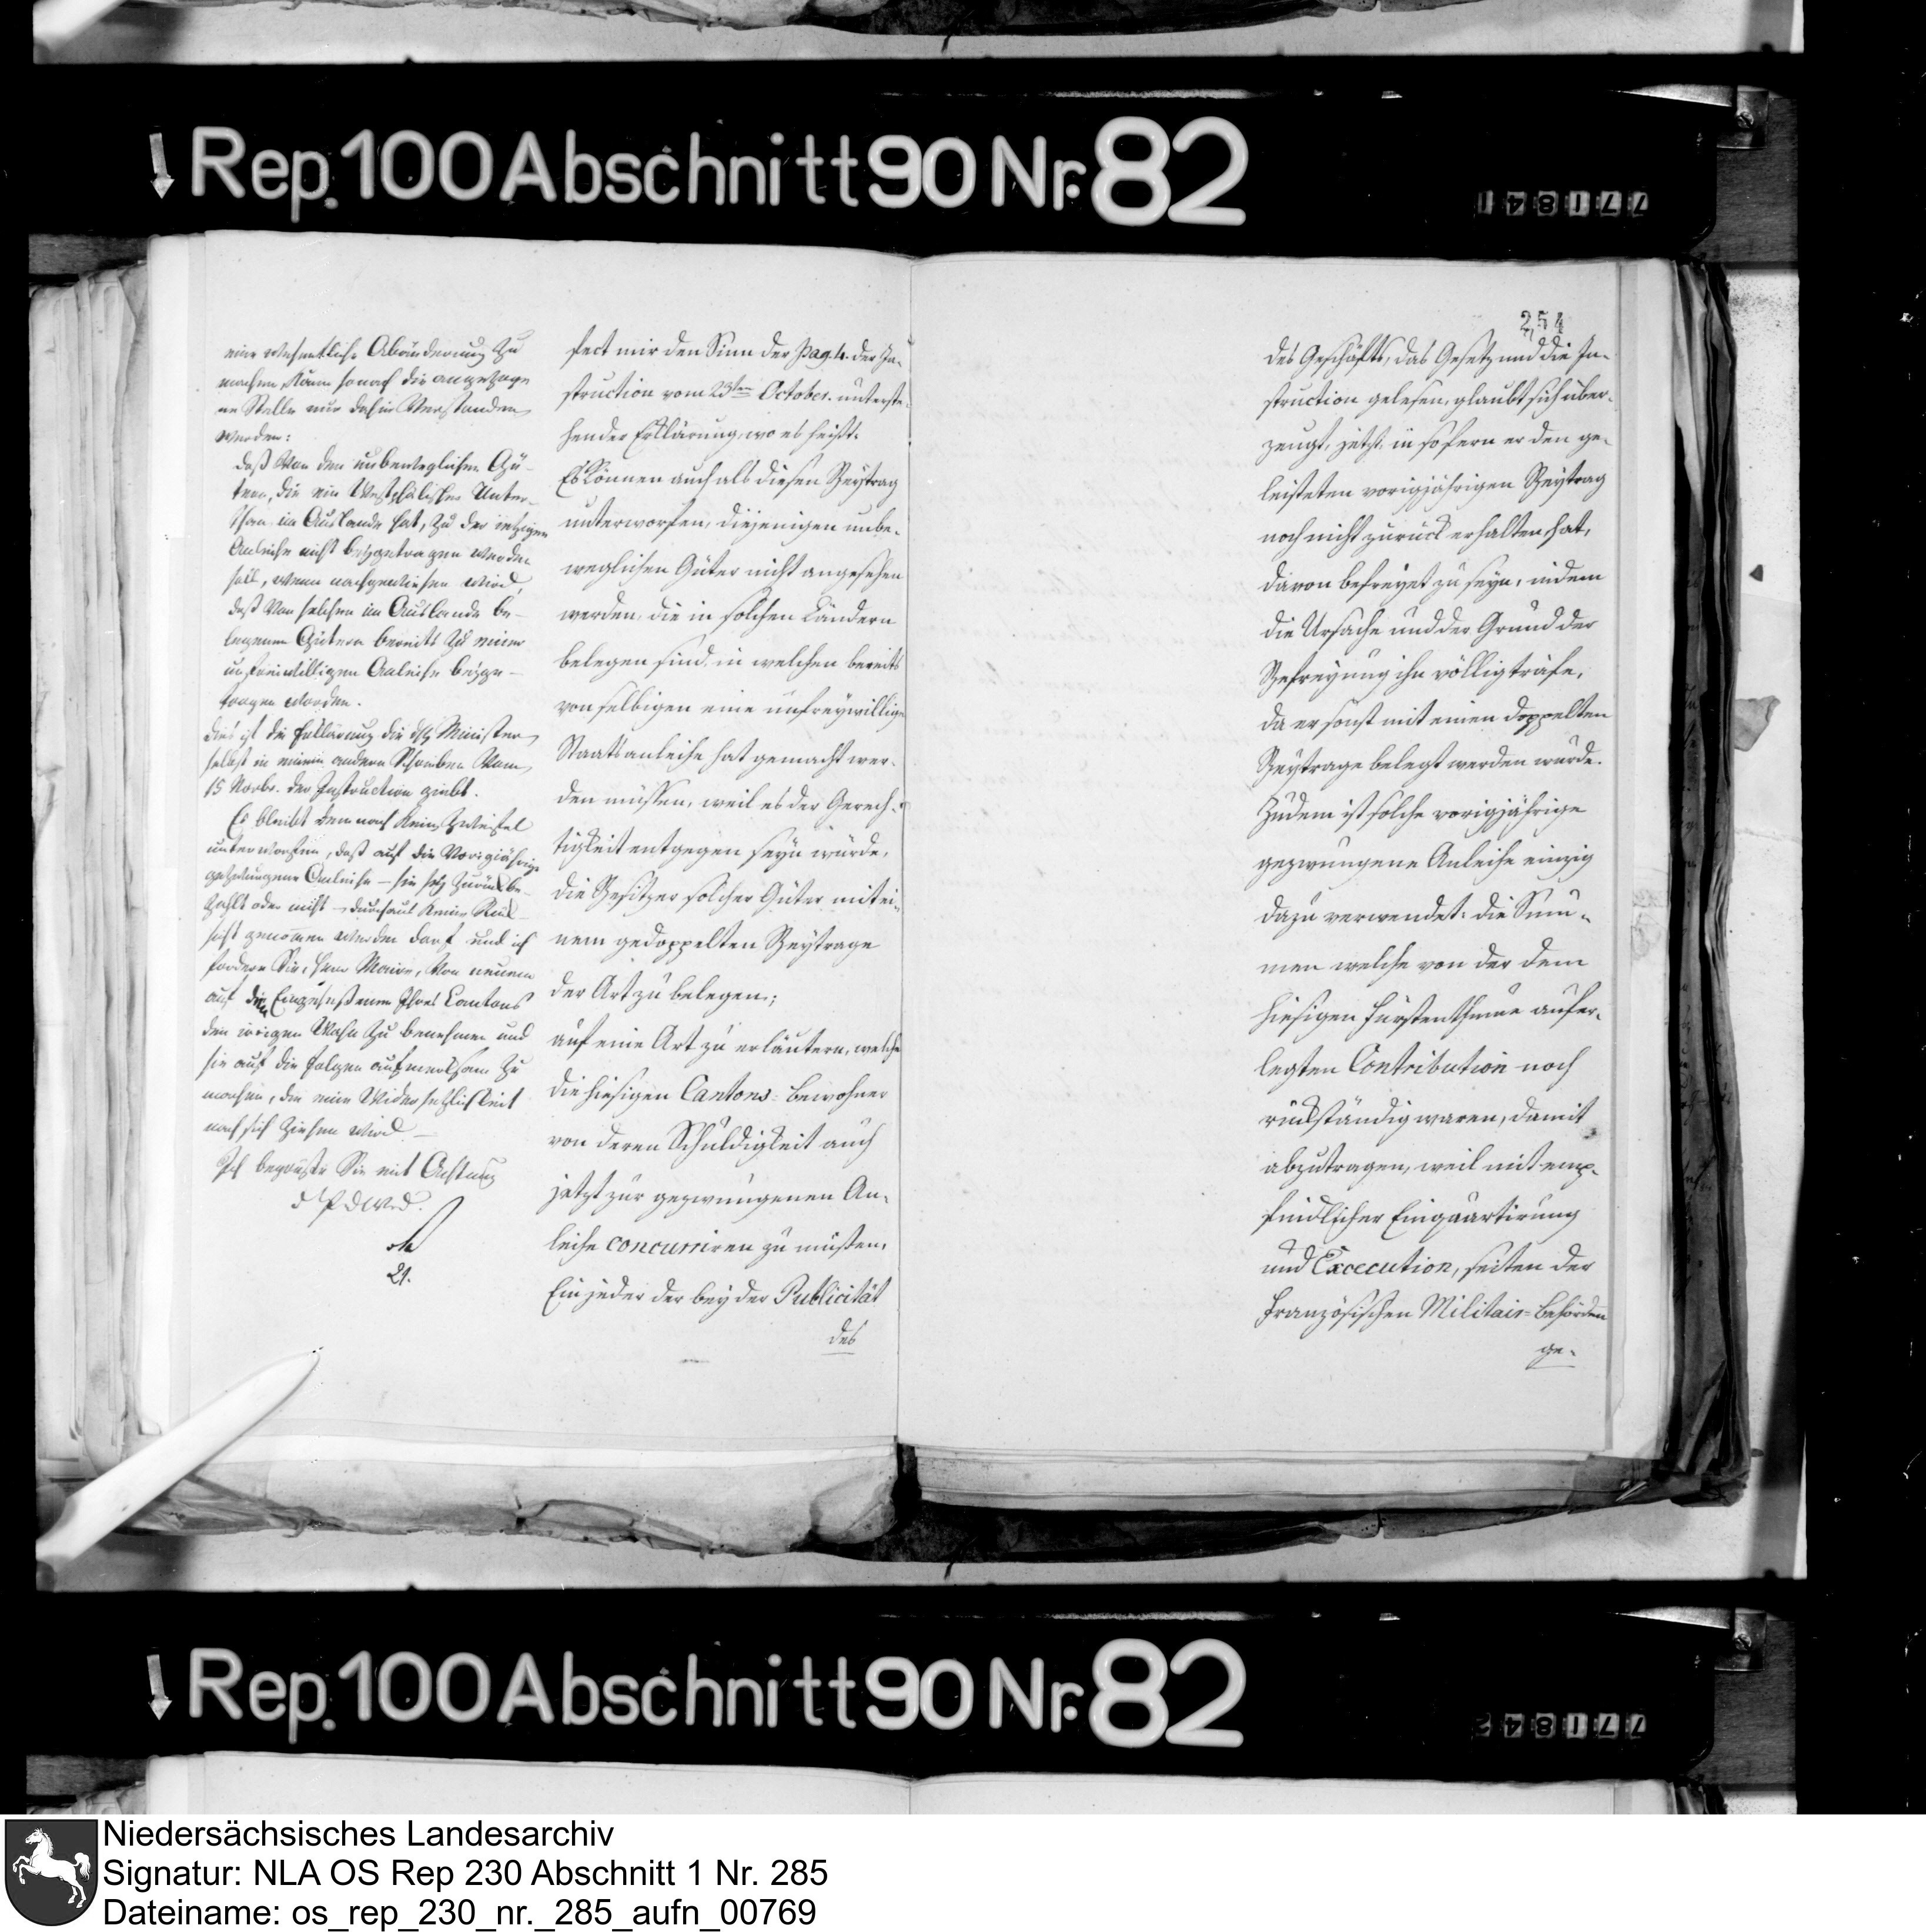 Rep. 100 Abschnitt 90 Nr. 82
771841
eine wesentliche Abänderung zu
machen, kann sonach die angezoge
ne Stelle nur dahin verstanden
werden:
daß von den unbeweglichen Gü-
tern, die ein Westphälischer Unter-
than im Auslande hat, zu der jetzigen
Anleihe nicht beygetragen werden
soll, wenn nachgewiesen wird,
daß von solchen im Auslande be-
legenen Gütern bereits zu einer
unfreiwilligen Anleihe beyge-
tragen worden.
dies ist die Erklärung die Minister
selbst in einem andern Schreiben vom
15 Novbr. der Instruction giebt.
Es bleibt demnach keinem Zweifel
unterworfen, daß auf die vorigjährige
gezwungene Anleihe – sie sey zurückbe-
zahlt oder nicht – durchaus keine Rück-
sicht genommen werden darf und ich
fordere Sie, Herr Maire, von neuem
auf die Eingesessenen Ihres Cantons
den irrigen Wahn zu benehmen und
sie auf die Folgen aufmerksam zu
machen, die eine Widersetzlichkeit
nach sich ziehen wird. –
Ich begrüße Sie mit Achtung
d P d W d.
21.
fect mir den Sinn der pag. 4. der In-
struction vom 23ten October. unterste-
hender Erklärung, wo es heißt:
Es können auch als diesen Beytrag
unterworfen, diejenigen unbe-
weglichen Güter nicht angesehen
werden, die in solchen Ländern
belegen sind, in welchen bereits
von selbigen eine unfreywillige
Staatsanleihe hat gemacht wer-
den müssen, weil es der Gerech-
tigkeit entgegen seyn würde,
die Besitzer solcher Güter mit ei-
nem gedoppelten Beytrage
der Art zu belegen;
auf eine Art zu erläutern, welche
die hiesigen Cantons-bewohner
von deren Schuldigkeit auch
jetzt zur gezwungenen An-
leihe concurriren zu müßen.
Ein jeder der bey der Publicität
des
254
des Geschäfts, das Gesetz und die In-
struction gelesen, glaubt sich über-
zeugt, jetzt, in sofern er den ge-
leisteten vorigjährigen Beytrag
noch nicht zurück erhalten hat,
davon befreyet zu seyn, indem
die Ursache und der Grund der
Befreyung ihn völlig träfe,
da er sonst mit einen doppelten
Beytrage belegt werden würde.
Zudem ist solche vorigjährige
gezwungene Anleihe einzig
dazu verwendet: die Sum-
men welche von der dem
hiesigen Fürstenthume aufer-
legten Contribution noch
rückständig waren, damit
abzutragen, weil mit emp-
findlicher Einquartirung
und Excecution, seiten der
französischen Militair-behörden
ge-
Rep. 100 Abschnitt 90 Nr. 82
771842
Niedersächsisches Landesarchiv
Signatur: NLA OS Rep 230 Abschnitt 1 Nr. 285
Dateiname: os_rep_230_nr._285_aufn_00769